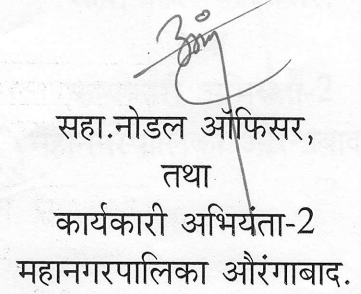 सहा.नोडल ऑफिसर,
तथा
कार्यकारी अभियंता-2
महानगरपालिका औरंगाबाद.